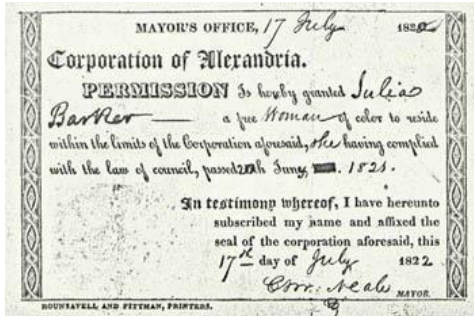 MAYOR'S OFFICE, 17 July 182
Corporation of Alexandria.
PERMISSION Is hereby granted Julia
Barker — a free Woman of color to reside
within the limits of the Corporation aforesaid, she having complied
with the law of council, passd 20th June, 1821.
In testimony whereof, I have hereunto
subscribed my name and affixed the
seal of the corporation aforesaid, this
17th day of July 1822
Neale MAYOR.
ROUNSAVELL AND PITTMAN, PRINTERS.